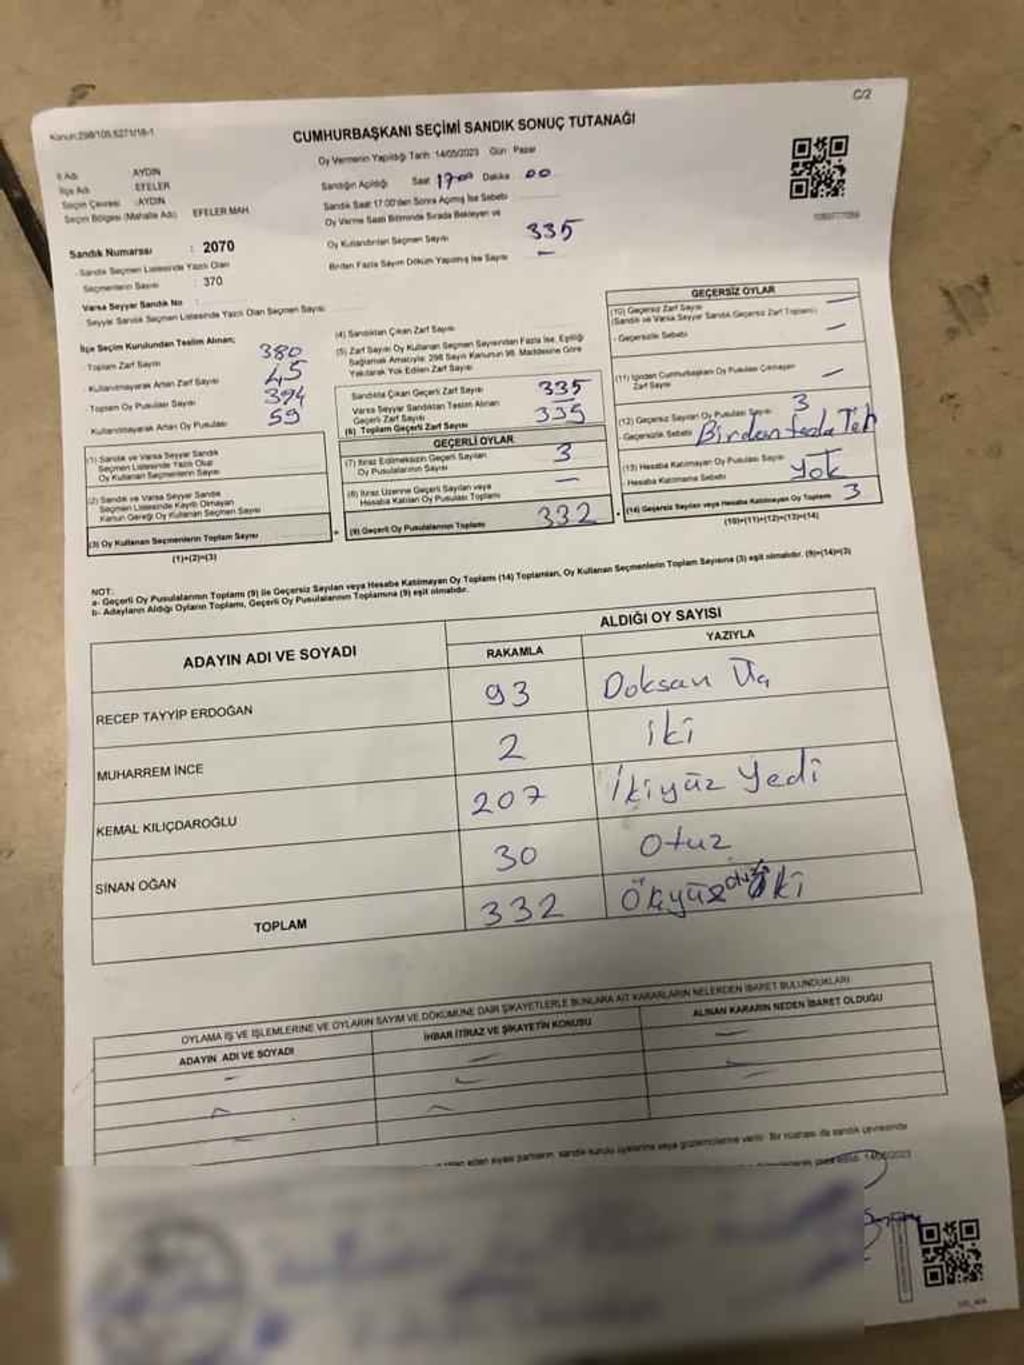 C/2
Kanun:298/105,6271/18-1
CUMHURBAŞKANI SEÇİMİ SANDIK SONUÇ TUTANAĞI
Oy Vermenin Yapıldığı Tarih :14/05/2023 Gün : Pazar
İl Adı : AYDIN
İlçe Adı : EFELER
Seçim Çevresi : AYDIN
Seçim Bölgesi (Mahalle Adı) EFELER MAH
Sandığın Açıldığı Saat 17:00 Dakika 00
Sandık Saat 17.00'den Sonra Açılmış İse Sebebi
Oy Verme Saati Bitiminde Sırada Bekleyen ve
Oy Kullandırılan Seçmen Sayısı 335
Birden Fazla Sayım Döküm Yapılmış İse Sayısı —
Sandık Numarası : 2070
- Sandık Seçmen Listesinde Yazılı Olan
Seçmenlerin Sayısı : 370
Varsa Seyyar Sandık No :
Seyyar Sandık Seçmen Listesinde Yazılı Olan Seçmen Sayısı:
İlçe Seçim Kurulundan Teslim Alınan;
- Toplam Zarf Sayısı 380
- Kullanılmayarak Artan Zarf Sayısı 45
- Toplam Oy Pusulası Sayısı 394
- Kullanılmayarak Artan Oy Pusulası 59
(1) Sandık ve Varsa Seyyar Sandık
Seçmen Listesinde Yazılı Olup
Oy Kullanan Seçmenlerin Sayısı
(2) Sandık ve Varsa Seyyar Sandık
Seçmen Listesinde Kayıtlı Olmayan
Kanun Gereği Oy Kullanan Seçmen Sayısı
(3) Oy Kullanan Seçmenlerin Toplam Sayısı
(1)+(2)=(3)
(4) Sandıktan Çıkan Zarf Sayısı
(5) Zarf Sayısı Oy Kullanan Seçmen Sayısından Fazla İse, Eşitliği
Sağlamak Amacıyla; 298 Sayılı Kanunun 98. Maddesine Göre
Yakılarak Yok Edilen Zarf Sayısı
Sandıkta Çıkan Geçerli Zarf Sayısı 335
Varsa Seyyar Sandıktan Teslim Alınan
Geçerli Zarf Sayısı
(6) Toplam Geçerli Zarf Sayısı 335
GEÇERLİ OYLAR
(7) İtiraz Edilmeksizin Geçerli Sayılan
Oy Pusulalarının Sayısı 3
(8) İtiraz Üzerine Geçerli Sayılan veya
Hesaba Katılan Oy Pusulası Toplamı —
(9) Geçerli Oy Pusulalarının Toplamı 332
GEÇERSİZ OYLAR
(10) Geçersiz Zarf Sayısı —
(Sandık ve Varsa Seyyar Sandık Geçersiz Zarf Toplamı)
- Geçersizlik Sebebi —
(11) İçinden Cumhurbaşkanı Oy Pusulası Çıkmayan
Zarf Sayısı —
(12) Geçersiz Sayılan Oy Pusulası Sayısı 3
- Geçersizlik Sebebi Birden fazla
(13) Hesaba Katılmayan Oy Pusulası Sayısı
- Hesaba Katılmama Sebebi yok
(14) Geçersiz Sayılan veya Hesaba Katılmayan Oy Toplamı 3
(10)+(11)+(12)+(13)=(14)
NOT:
a- Geçerli Oy Pusulalarının Toplamı (9) ile Geçersiz Sayılan veya Hesaba Katılmayan Oy Toplamı (14) Toplamları, Oy Kullanan Seçmenlerin Toplam Sayısına (3) eşit olmalıdır. (9)+(14)=(3)
b- Adayların Aldığı Oyların Toplamı, Geçerli Oy Pusulalarının Toplamına (9) eşit olmalıdır.
ADAYIN ADI VE SOYADI
ALDIĞI OY SAYISI
RAKAMLA YAZIYLA
RECEP TAYYİP ERDOĞAN 93 Doksan Üç
MUHARREM İNCE 2 iki
KEMAL KILIÇDAROĞLU 207 İkiyüz Yedi
SİNAN OĞAN 30 Otuz
TOPLAM 332 Üçyüz otuz iki
OYLAMA İŞ VE İŞLEMLERİNE VE OYLARIN SAYIM VE DÖKÜMÜNE DAİR ŞİKAYETLERLE BUNLARA AİT KARARLARIN NELERDEN İBARET BULUNDUKLARI
ADAYIN ADI VE SOYADI İHBAR İTİRAZ VE ŞİKAYETİN KONUSU ALINAN KARARIN NEDEN İBARET OLDUĞU
eden siyasi partilerin, sandık kurulu üyelerine veya gözlemcilerine verilir. Bir nüshası da sandık çevresinde
14/05/2023